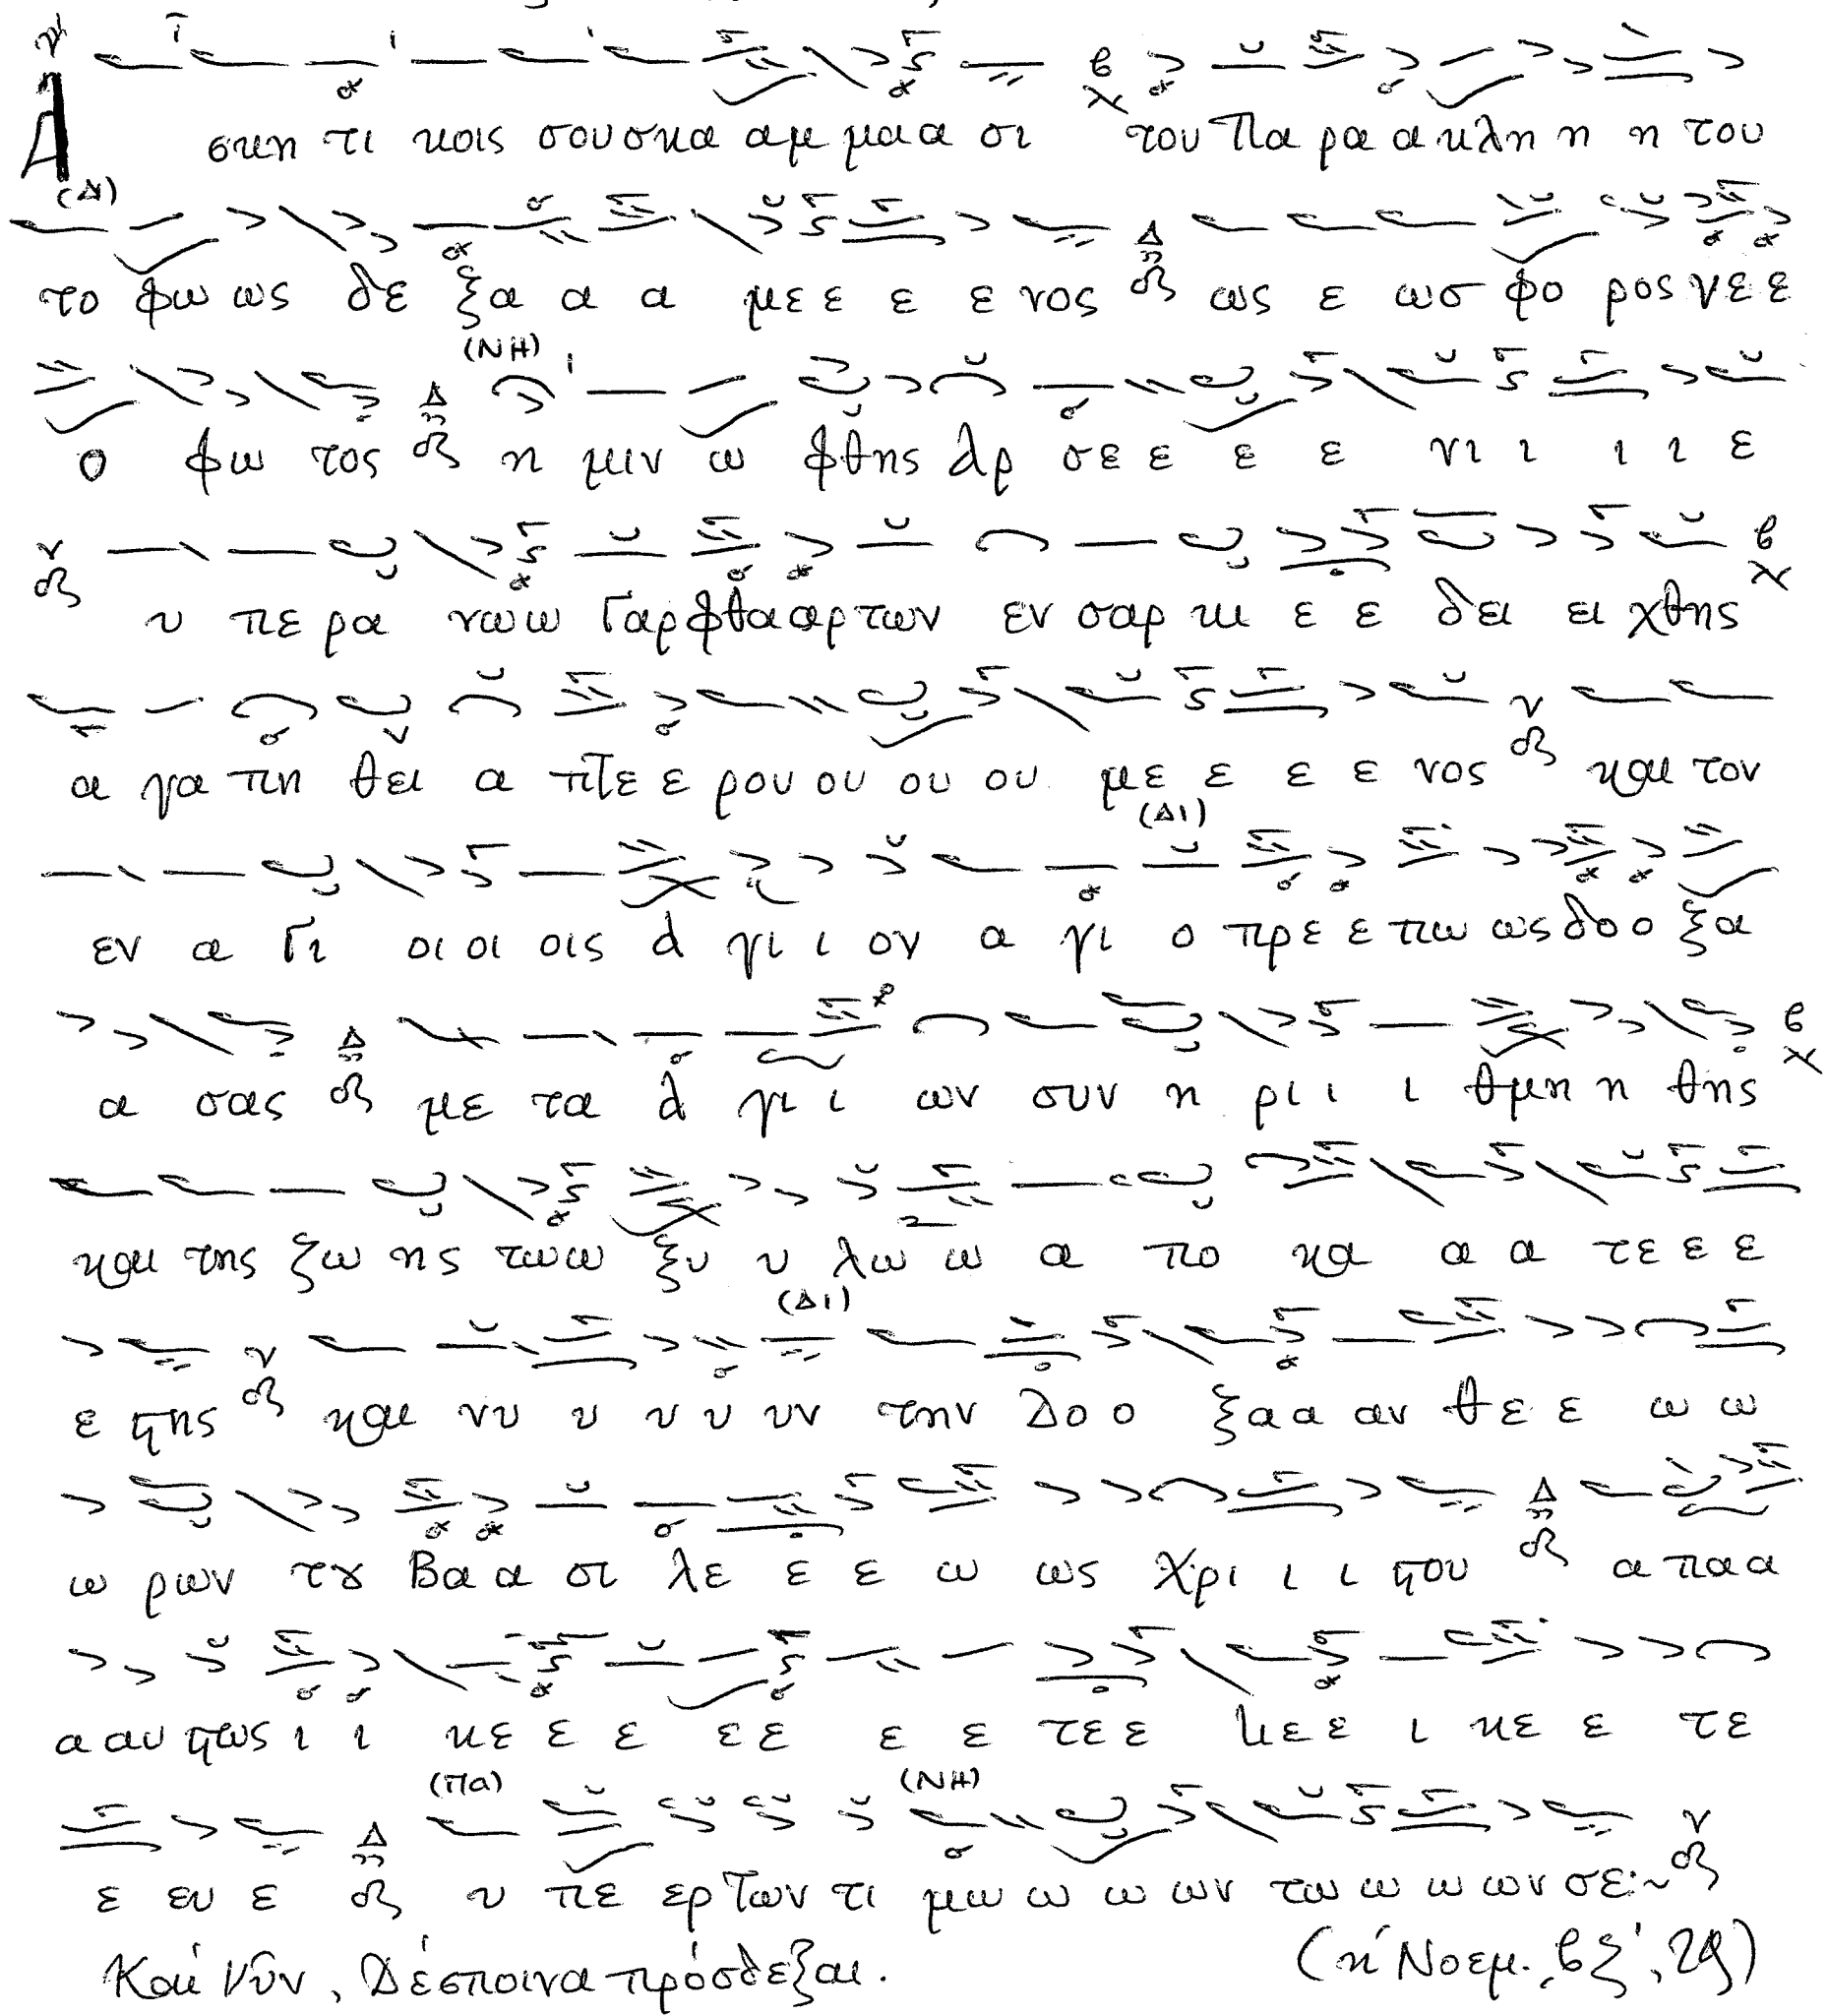 Α σκη τι κοις σου σκα αμ μα α σι του Πα ρα α κλη η η του
(Δ)
το φω ως δε ξα α α με ε ε ε νος ως ε ωσ φο ρος νε ε
(ΝΗ)
ο φω τος η μιν ω φθης Αρ σε ε ε ε νι ι ι ι ε
υ πε ρα νω ω Γαρ φθα αρ των εν σαρ κι ε ε δει ει χθης
α γα πη θει α πτε ε ρου ου ου ου με ε ε ε νος και τον
(Δι)
εν α Γι οι οι οις Α γι ι ον α γι ο πρε ε πω ως δο ο ξα
α σας με τα Α γι ι ων συν η ρι ι ι θμη η θης
και της ζω ης τω ω ξυ υ λω ω α πο κα α α τε ε ε
(Δι)
ε στης και νυ υ υ υ υν την Δο ο ξα α αν θε ε ω ω
ω ρων του Βα α σι λε ε ε ω ως Χρι ι ι στου α πα α
α αυ στως ι ι κε ε ε ε ε ε ε τε ε κε ε ι κε ε τε
(Πα) (ΝΗ)
ε ευ ε υ πε ερ Των τι μω ω ω ων τω ω ω ων σε:~
Και νῦν, Δέσποινα πρόσδεξαι. (κ' Νοεμ.,βξ',29)